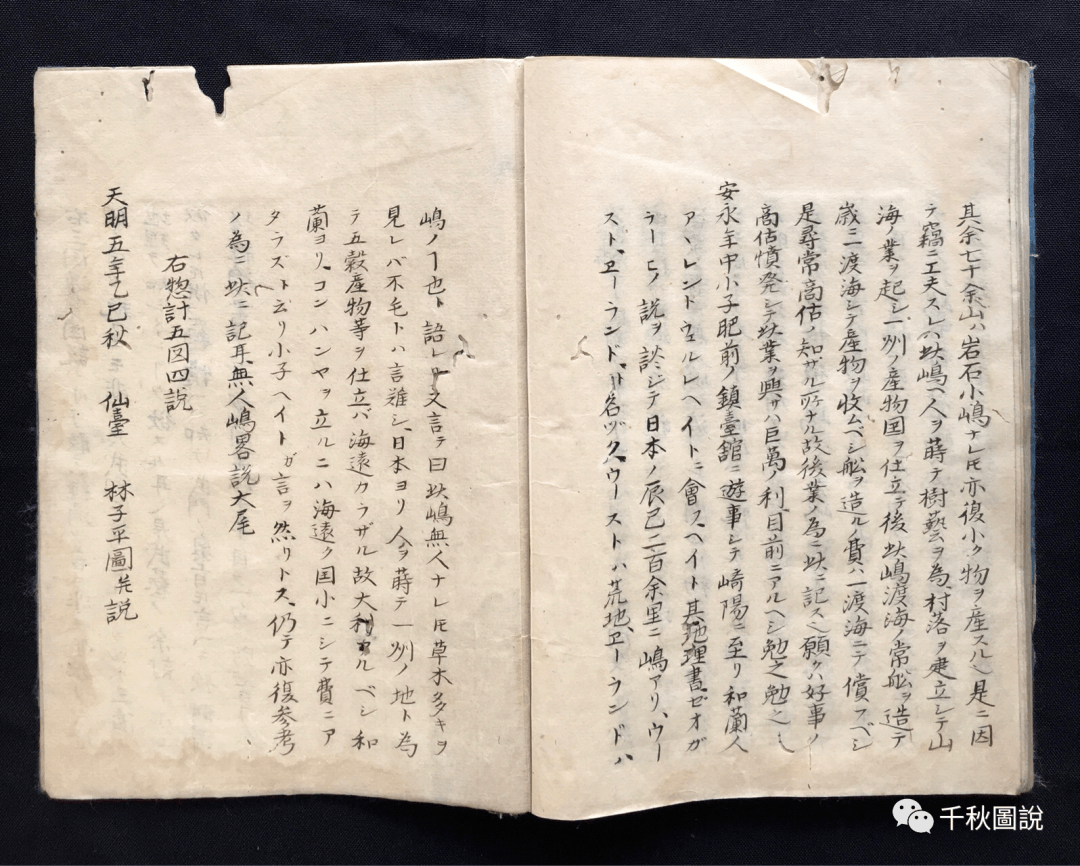 其余七十余山ハ岩石小嶋ナレ𪜈亦復小ク物ヲ産スル〆是ニ因
テ竊ニ工夫スレハ此嶋ヘ人ヲ蒔テ樹藝ヲ為村落ヲ建立シテ山
海ノ業ヲ起シ一州ノ産物国ヲ仕立
後此嶋渡海ノ常舩ヲ造テ
歳二渡海シテ産物ヲ收ムベシ舩ヲ造ルノ費ハ一渡海ニテ償フベシ
是尋常商估ノ知ザル所ナル故後業ノ為ニ此ニ記ス
願クハ好事ノ
商估憤発シテ此業ヲ興サハ巨萬ノ利目前ニアルヘシ勉之勉之
安永年中小子肥前ノ鎮臺舘ニ遊事シテ﨑陽ニ至リ和蘭人
アヽレントウェルレヘイトニ會スヘイト其地理書ゼオガ
ラーヒノ説ヲ談シテ日本ノ辰巳二百余里ニ嶋アリ、ウー
スト、ヱーランド、ト名ヅク、ウーストハ荒地、ヱーランドハ
嶋ノヿ也ト語レリ文言ヲ曰此嶋無人ナレ𪜈草木多キヲ
見レバ不毛トハ言難シ、日本ヨリ人ヲ蒔テ一州ノ地ト為
テ五穀産物等ヲ仕立バ海遠クラザル故大利
ルベシ和
蘭ヨリ、コンハンヤヲ立ルニハ海遠ク国小ニシテ費ニア
タラズト云リ小子ヘイトガ言ヲ然リトス、仍テ亦復参考
ノ為ニ此ニ記耳無人嶋畧説大尾
右惣計五図四説
天明五年乙巳秋 仙臺 林子平圖并説
千秋圖說